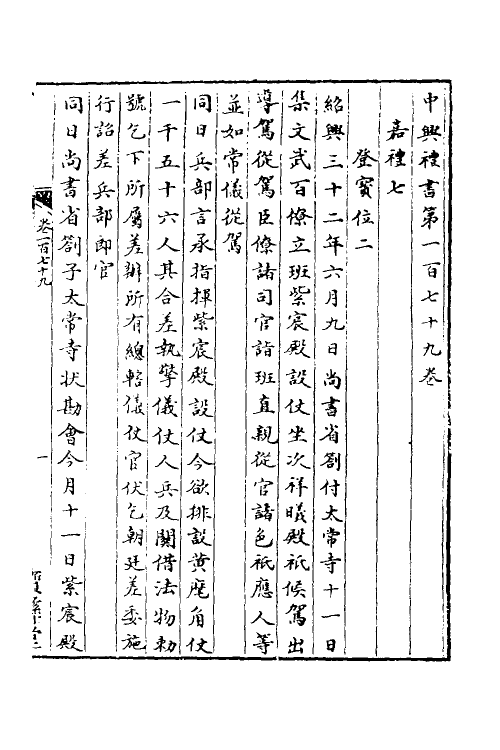 中興禮書第一百七十九卷
嘉禮七
登寳位二
紹興三十二年六月九日尚書省劄付太常寺十一日
集文武百僚立班紫宸殿設仗坐次祥曦殿祗候駕出
導駕從駕臣僚諸司官詣班直親從官諸色祗應人等
並如常儀從駕
同日兵部言承指揮紫宸殿設仗今欲排設黄麾角仗
一千五十六人其合差執擎儀仗人兵及關借法物勅
號乞下所屬差辦所有總轄儀仗官伏乞朝廷差委施
行詔差兵部郎官
同日尚書省劄子太常寺狀勘會今月十一日紫宸殿
卷一百七十九
一